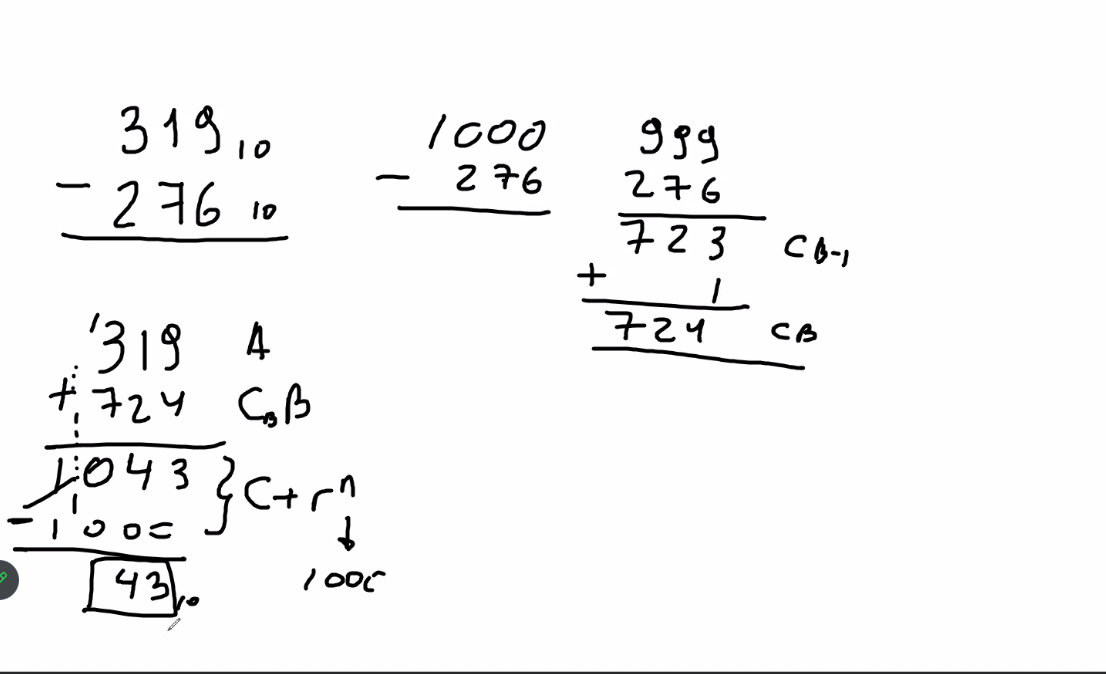 319 10
- 276 10
1000
- 276
999
276
723 CB-1
+ 1
724 CB
1
319 A
+ 724 CBB
1043 } C + r^n
- 1000
1000
43 10